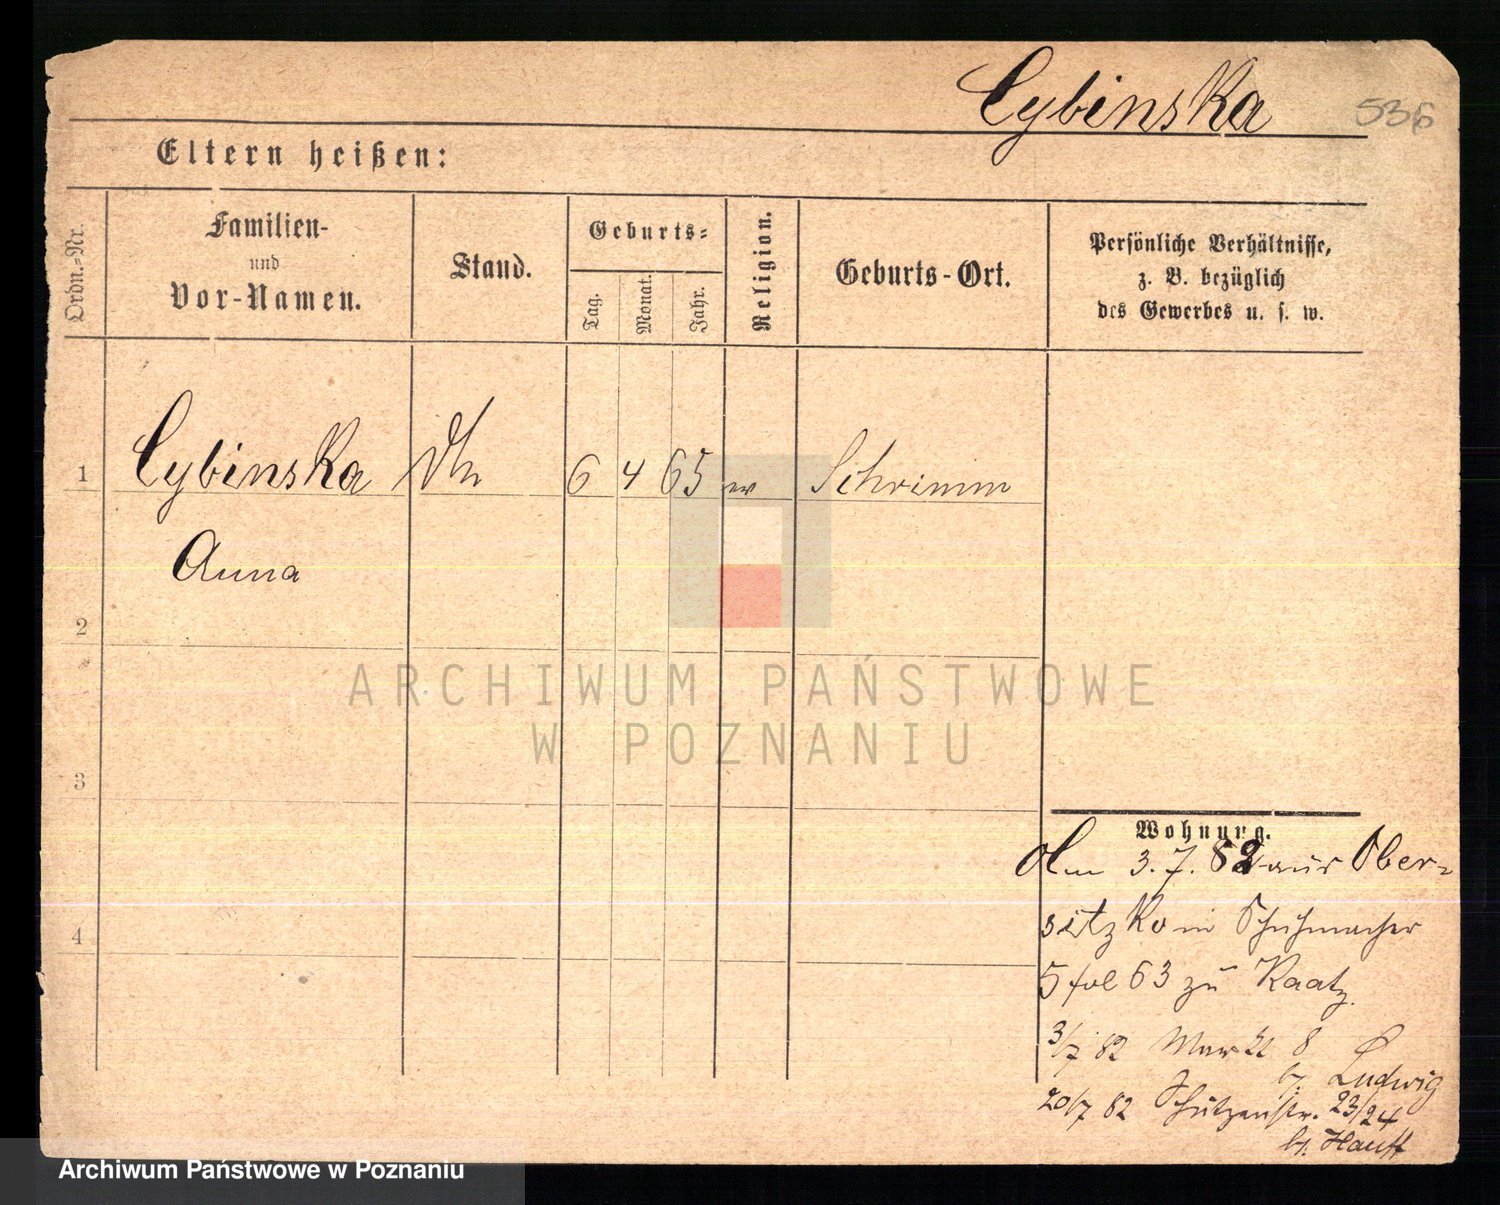 Cybinska
536
Eltern heißen:
Ordn.-Nr.
Familien-
und
Vor-Namen.
Stand.
Geburts-
Tag.
Monat.
Jahr.
Religion.
Geburts-Ort.
Persönliche Verhältnisse,
z. B. bezüglich
des Gewerbes u. s. w.
1 Cybinska 6 4 65 Schrimm
Anna
2
3
4
ARCHIWUM PAŃSTWOWE
W POZNANIU
Wohnung.
3. 7. 82 aus Ober-
sitzko in Schuhmacher
5 fol 63 zu Kaatz.
3/7 82 Markt 8
b. Ludwig
20/7 82 Schützenstr. 23/24
b. Hauff
Archiwum Państwowe w Poznaniu